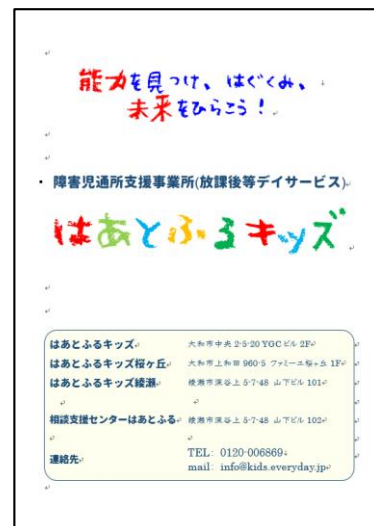 能力を見つけ、はぐくみ、
未来をひらこう！
・ 障害児通所支援事業所(放課後等デイサービス)
はあとふるキッズ
はあとふるキッズ 大和市中央 2-5-20 YGC ビル 2F
はあとふるキッズ桜ヶ丘 大和市上和田 960-5 ファミーユ桜ヶ丘 1F
はあとふるキッズ綾瀬 綾瀬市深谷上 5-7-48 山下ビル 101
相談支援センターはあとふる 綾瀬市深谷上 5-7-48 山下ビル 102
連絡先 TEL: 0120-006869
mail: info@kids.everyday.jp